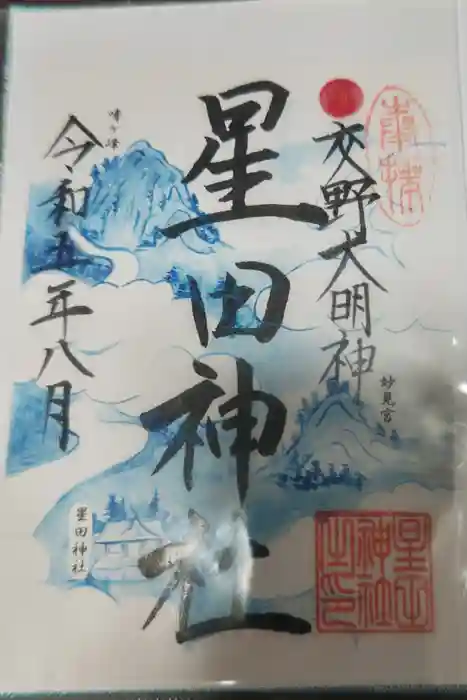 奉拝
交野大明神
星田神社
令和五年八月
妙見宮
星田神社
星田神社之印